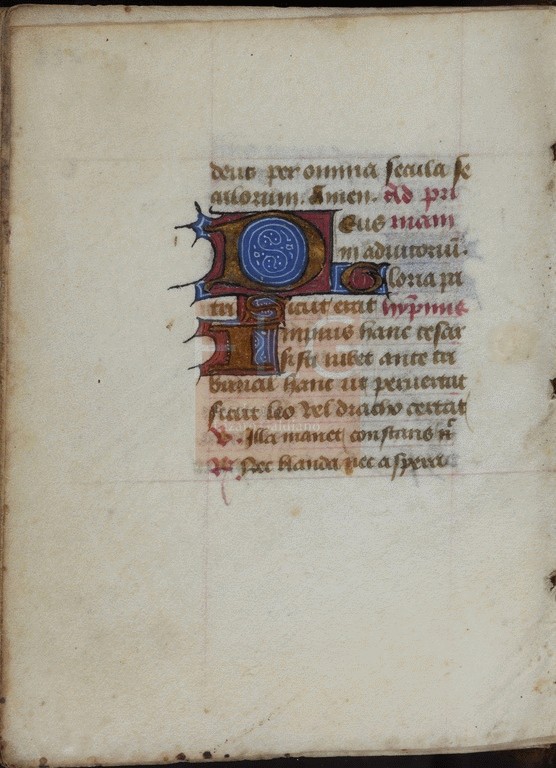 deus per omnia secula se
culorum. Amen. Ad pri
Deus mam
in adiutoriū.
Gloria pa
tri Sicut erat hympnus
Impius hanc cesar
si sti iubet ante tri
bunal hanc ut peruertat
sicut leo vel dracho certat
V. Illa manet constans n̄
R. Nec blanda nec aspera